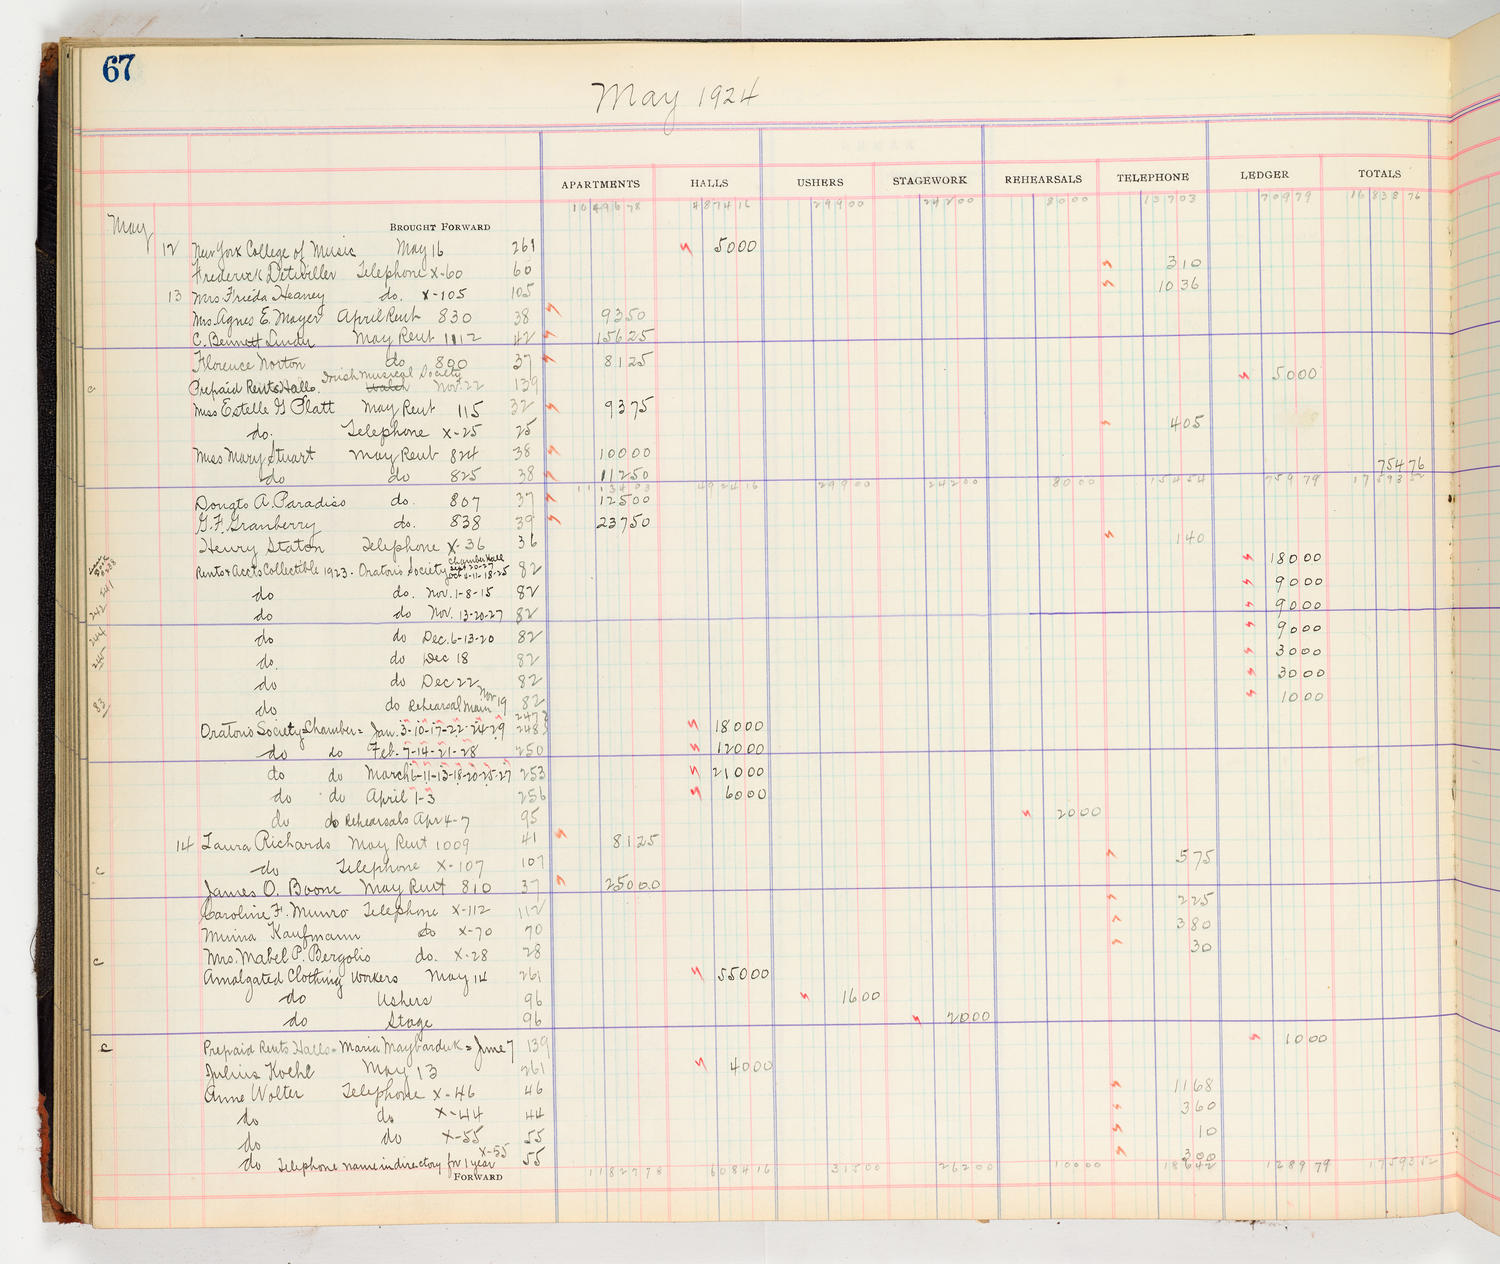 67
May 1924
APARTMENTS HALLS USHERS STAGEWORK REHEARSALS TELEPHONE LEDGER TOTALS
1049678 487416 29900 24200 8000 13703 70979 1683876
May BROUGHT FORWARD
12 New York College of Music May 16 261 5000
Frederick Detwiller Telephone X-60 60 310
13 Mrs Frieda Heaney do. X-105 105 1036
Mrs. Agnes E. Mayer April Rent 830 38 9350
C. Bennett Linder May Rent 1112 42 15625
Florence Norton do 800 37 8125
c Prepaid Rents Halls. Irish Musical Society Nov. 22 139 5000
Miss Estelle G Platt May Rent 115 32 9375
do. Telephone X-25 25 405
Miss Mary Stuart May Rent 824 38 10000
do do 825 38 11250 75476
1113403 492416 29900 24200 8000 15454 75979 1759352
A. Paradiso do. 807 37 12500
G. F. Granberry do. 838 39 23750
Henry Staton Telephone X-36 36 140
Rents & Accts Collectible 1923. Oratorio Society Chamber Hall Oct 4-11-18-25 82 18000
241 do do. Nov. 1-8-15 82 9000
242 do do Nov. 13-20-27 82 9000
244 do do Dec. 6-13-20 82 9000
245 do. do Dec 18 82 3000
do do Dec 22 82 3000
83 do do Rehearsal Main Nov 19 82 1000
Oratorio Society Chamber = Jan. 3-10-17-22-24-29 247 248 18000
do do Feb. 7-14-21-28 250 12000
do do March 6-11-13-18-20-25-27 253 21000
do do April 1-3 256 6000
do do Rehearsals Apr 4-7 95 2000
14 Laura Richards May Rent 1009 41 8125
c do Telephone X-107 107 575
James O. Boone May Rent 810 37 25000
Caroline F. Munro Telephone X-112 112 225
Minna Kaufmann do X-70 70 380
c Mrs. Mabel P. Bergolio do. X-28 28 30
Amalgated Clothing Workers May 14 261 55000
do Ushers 96 1600
do Stage 96 2000
c Prepaid Rents Halls = Maria Maybarduk = June 7 139 1000
Julius Koehl May 13 261 4000
Anne Wolter Telephone X-46 46 1168
do do X-44 44 360
do do X-55 55 10
do Telephone name in directory for 1 year X-55 55 300
FORWARD 1182778 608416 31500 26200 10000 18642 128979 1759352